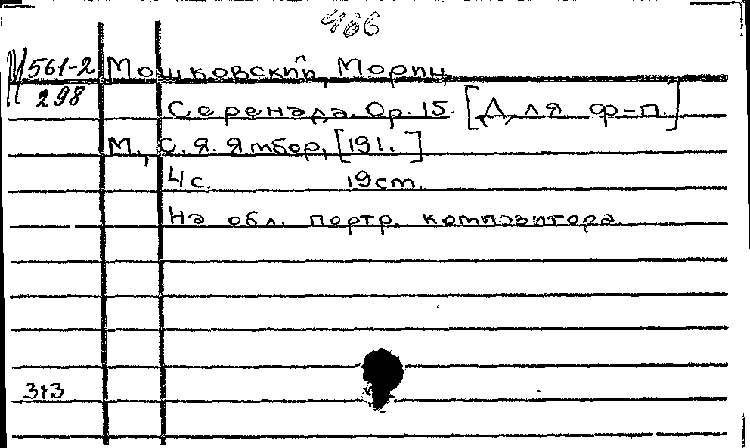 466
М 561-2
298
Мошковский, Мориц
Серенада. Op. 15. [Для ф-п]
М., С. Я. Ямбор, [191. ]
4 с. 19 cm.
На обл. портр. композитора
313